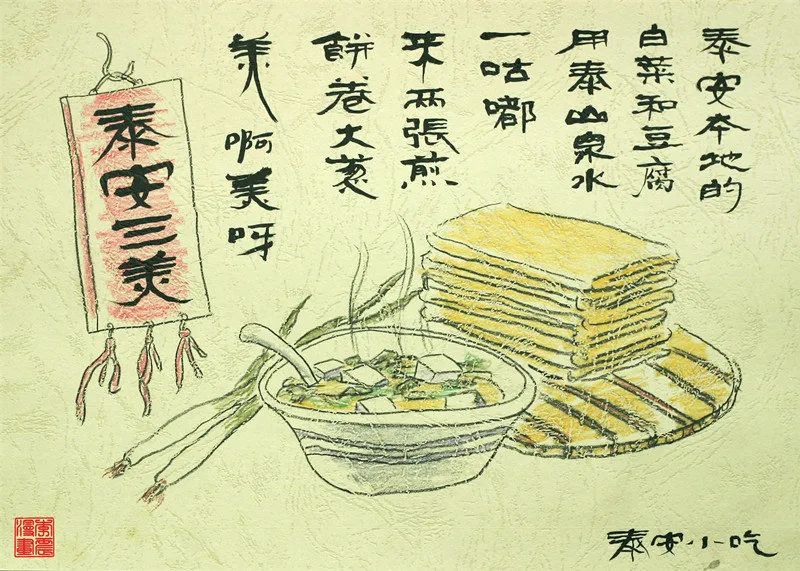 泰安本地的
白菜和豆腐
用泰山泉水
一咕嘟
来两張煎
餅卷大葱
美啊美呀
泰安三美
泰安小吃
李震
漫畫